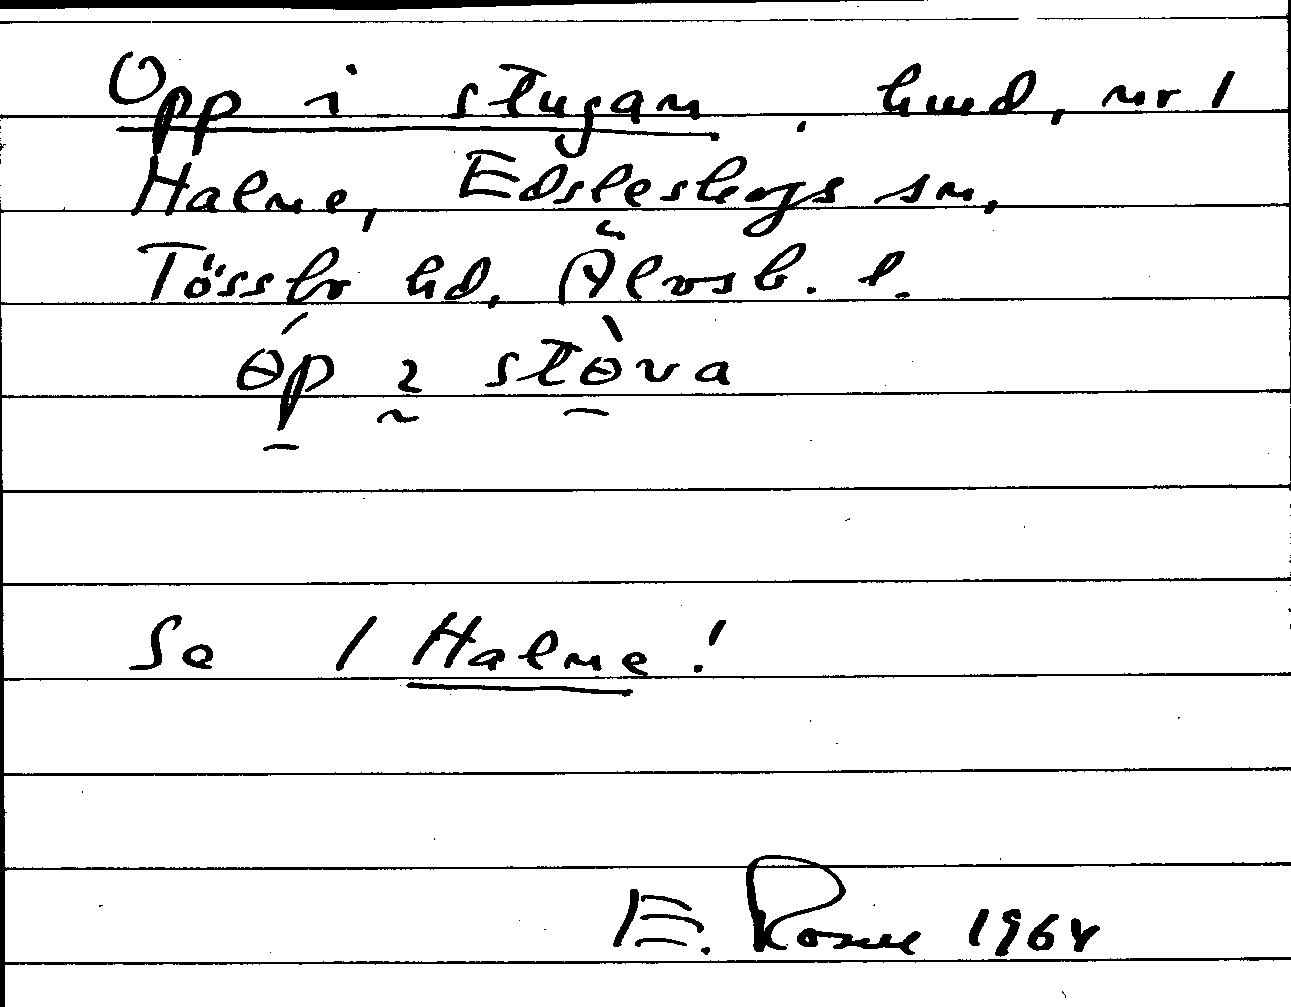 Opp i stugan. hmd, nr 1
Halme, Edsleskogs sn,
Tössbo hd, Älvsb. l.
ɵ́p ɩ stɵ̀va
Se 1 Halme!
E. 1964